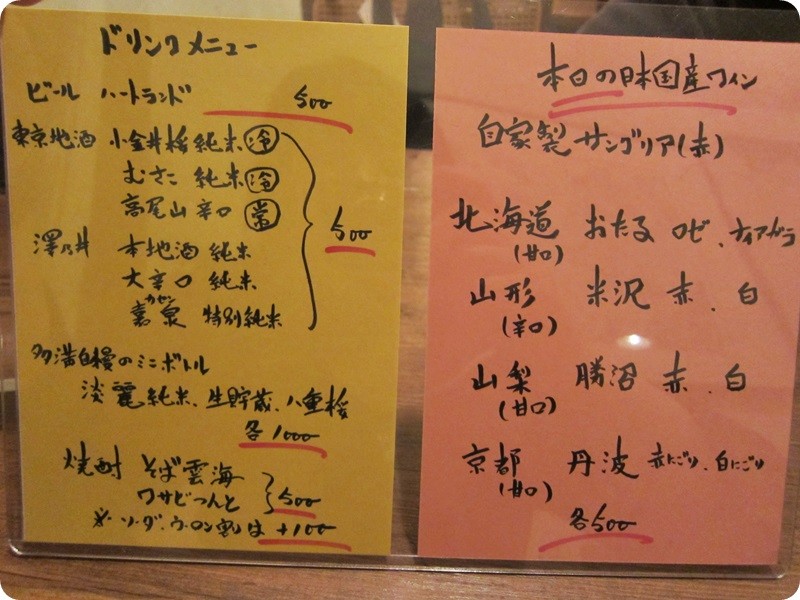 ドリンクメニュー
ビール ハートランド 500
東京地酒 小金井桜 純米 冷
むさこ 純米 冷
高尾山 辛口 常
500
澤乃井 本地酒 純米
大辛口 純米
カセン
嘉泉 特別純米
多満自慢のミニボトル
淡麗純米、生貯蔵、八重桜
各1000
焼酎 そば雲海
ワサビつんと
500
※ソーダ、ウーロン割は +100
本日の日本国産ワイン
自家製サングリア(赤)
北海道 おたる ロゼ、ナイアガラ
(甘口)
山形 米沢 赤、白
(辛口)
山梨 勝沼 赤、白
(甘口)
京都 丹波 赤にごり、白にごり
(甘口)
各500